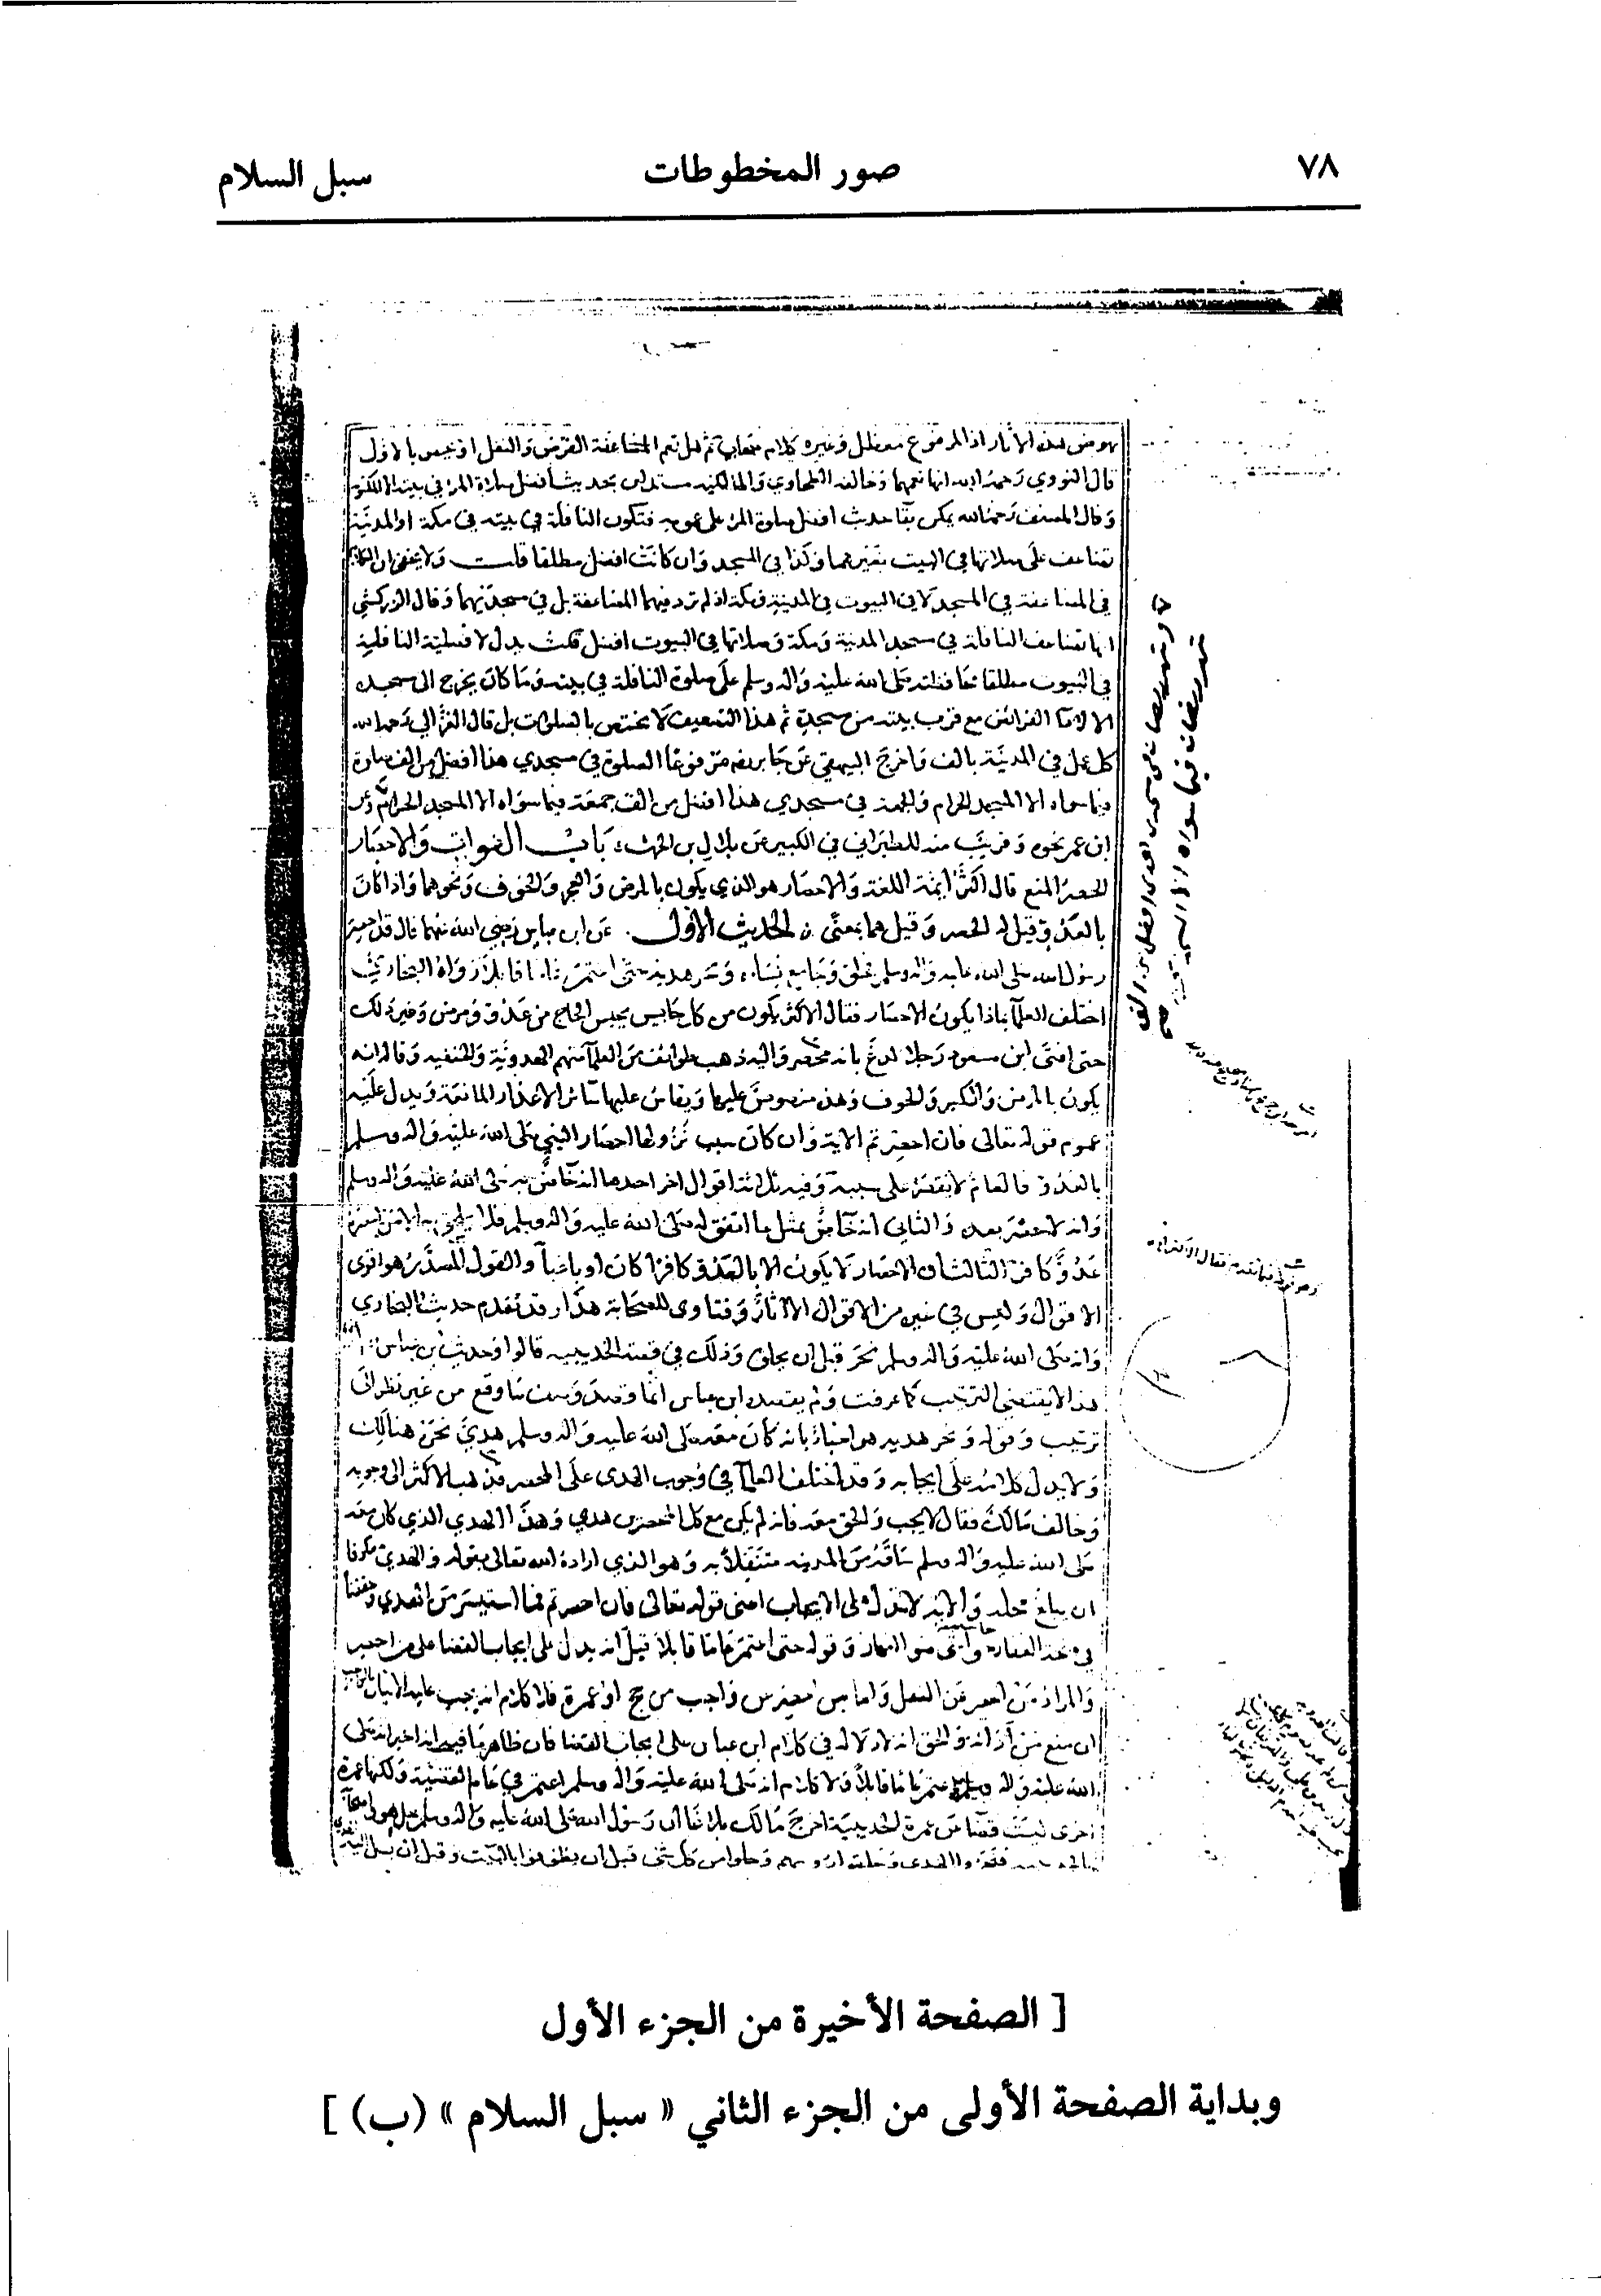 ٧٨ صور المخطوطات سبل السلام
هذه الآثار اذ المرفوع وغيره كلام ثم هل تعم المضاعفة الفرض والنفل او تخص بالاول
قال النووي رحمه الله انها تعمهما وخالفه الطحاوي والمالكية مستدلين بحديث افضل صلاة المرء في بيته الا المكتوبة
وقال المصنف رحمه الله يمكن بقا حديث افضل صلوة المرء على عمومه فتكون النافلة في بيته في مكة او المدينة
تضاعف على صلاتها في البيت بغيرهما وكذا في المسجد وان كانت افضل مطلقا قلت ولا يخفى ان الكلام
في المضاعفة في المسجد لا في البيوت في المدينة ومكة اذ لم ترد فيهما المضاعفة بل في مسجديهما وقال الزركشي
انها تضاعف النافلة في مسجد المدينة ومكة وصلاتها في البيوت افضل قلت يدل لافضلية النافلة
في البيوت مطلقا محافظته صلى الله عليه واله وسلم على صلوة النافلة في بيته وما كان يخرج الى مسجده
الا لاداء الفرائض مع قرب بيته من مسجده ثم هذا التضعيف لا يختص بالصلوات بل قال الغزالي رحمه الله
كل عمل في المدينة بالف واخرج البيهقي عن جابر مرفوعا الصلوة في مسجدي هذا افضل من الف صلوة
فيما سواه الا المسجد الحرام والجمعة في مسجدي هذا افضل من الف جمعة فيما سواه الا المسجد الحرام
ابن عمر نحوه وقريب منه للطبراني في الكبير عن بلال بن الحرث باب الفوات والاحصار
الحصر المنع قال اكثر ايمة اللغة والاحصار هو الذي يكون بالمرض والعجز والخوف ونحوها واذا كان
بالعدو قيل له الحصر وقيل هما بمعنى الحديث الاول عن ابن عباس رضي الله عنهما قال قد احصر
رسول الله صلى الله عليه واله وسلم فحلق وجامع نساءه ونحر هديه حتى اعتمر عاما قابلا رواه البخاري
اختلف العلما بماذا يكون الاحصار فقال الاكثر يكون من كل حابس يحبس الحاج من عدو ومرض وغير ذلك
حتى افتى ابن مسعود رجلا لدغ بانه محصر واليه ذهب طوائف من العلما منهم الهدوية والحنفية وقالوا انه
يكون بالمرض والكبر والخوف وهذه منصوص عليها ويقاس عليها سائر الاعذار المانعة ويدل عليه
عموم قوله تعالى فان احصرتم الاية وان كان سبب نزولها احصار النبي صلى الله عليه واله وسلم
بالعدو فالعام لا يقصر على سببه وفيه ثلاثة اقوال اخر احدها انه خاص به صلى الله عليه واله وسلم
وانه لا حصر بعده والثاني انه خاص بمثل ما اتفق له صلى الله عليه واله وسلم فلا يلحق به الا من احصره
عدو كافر الثالث ان الاحصار لا يكون الا بالعدو كافرا كان او باغيا والقول المصدر هو اقوى
الاقوال وليس في غيره من الاقوال الا آثار وفتاوى للصحابة هذا وقد تقدم حديث البخاري
وانه صلى الله عليه واله وسلم نحر قبل ان يحلق وذلك في قصة الحديبية قالوا وحديث ابن عباس
هذا لا يقتضي الترتيب كما عرفت ولم يقصده ابن عباس انما قصد وصف ما وقع من غير نظر الى
ترتيب وقوله ونحر هديه هو اخبار بانه كان معه صلى الله عليه واله وسلم هدي نحره هنالك
ولا يدل كلامه على ايجابه وقد اختلف العلما في وجوب الهدى على المحصر فذهب الاكثر الى وجوبه
وخالف مالك فقال لا يجب والحق معه فانه لم يكن مع كل المحصرين هدي وهذا الهدي الذي كان معه
صلى الله عليه واله وسلم ساقه من المدينة متنفلا به وهو الذي اراده الله تعالى بقوله والهدي معكوفا
ان يبلغ محله والاية لا تدل على الايجاب اعني قوله تعالى فان احصرتم فما استيسر من الهدي وحققناه
في منحة الغفار حاشية ضو النهار وقوله حتى اعتمر عاما قابلا قيل انه يدل على ايجاب القضا على من احصر
والمراد من احصر عن النفل واما من احصر عن واجب من حج او عمرة فلا كلام انه يجب عليه الاتيان بالواجب
ان منع من ادائه والحق انه لا دلالة في كلام ابن عباس على ايجاب القضا فان ظاهر ما فيه انه اخبر انه صلى
الله عليه واله وسلم اعتمر عاما قابلا ولا كلام انه صلى الله عليه واله وسلم اعتمر في عام القضية ولكنها عمرة
اخرى ليست قضا عن عمرة الحديبية اخرج مالك بلاغا ان رسول الله صلى الله عليه واله وسلم حل هو واصحابه
بالحديبية فنحروا الهدى وحلقوا رؤسهم وحلوا من كل شي قبل ان يطوفوا بالبيت وقبل ان يصل اليه الهدي
[ الصفحة الأخيرة من الجزء الأول
وبداية الصفحة الأولى من الجزء الثاني « سبل السلام » (ب) ]